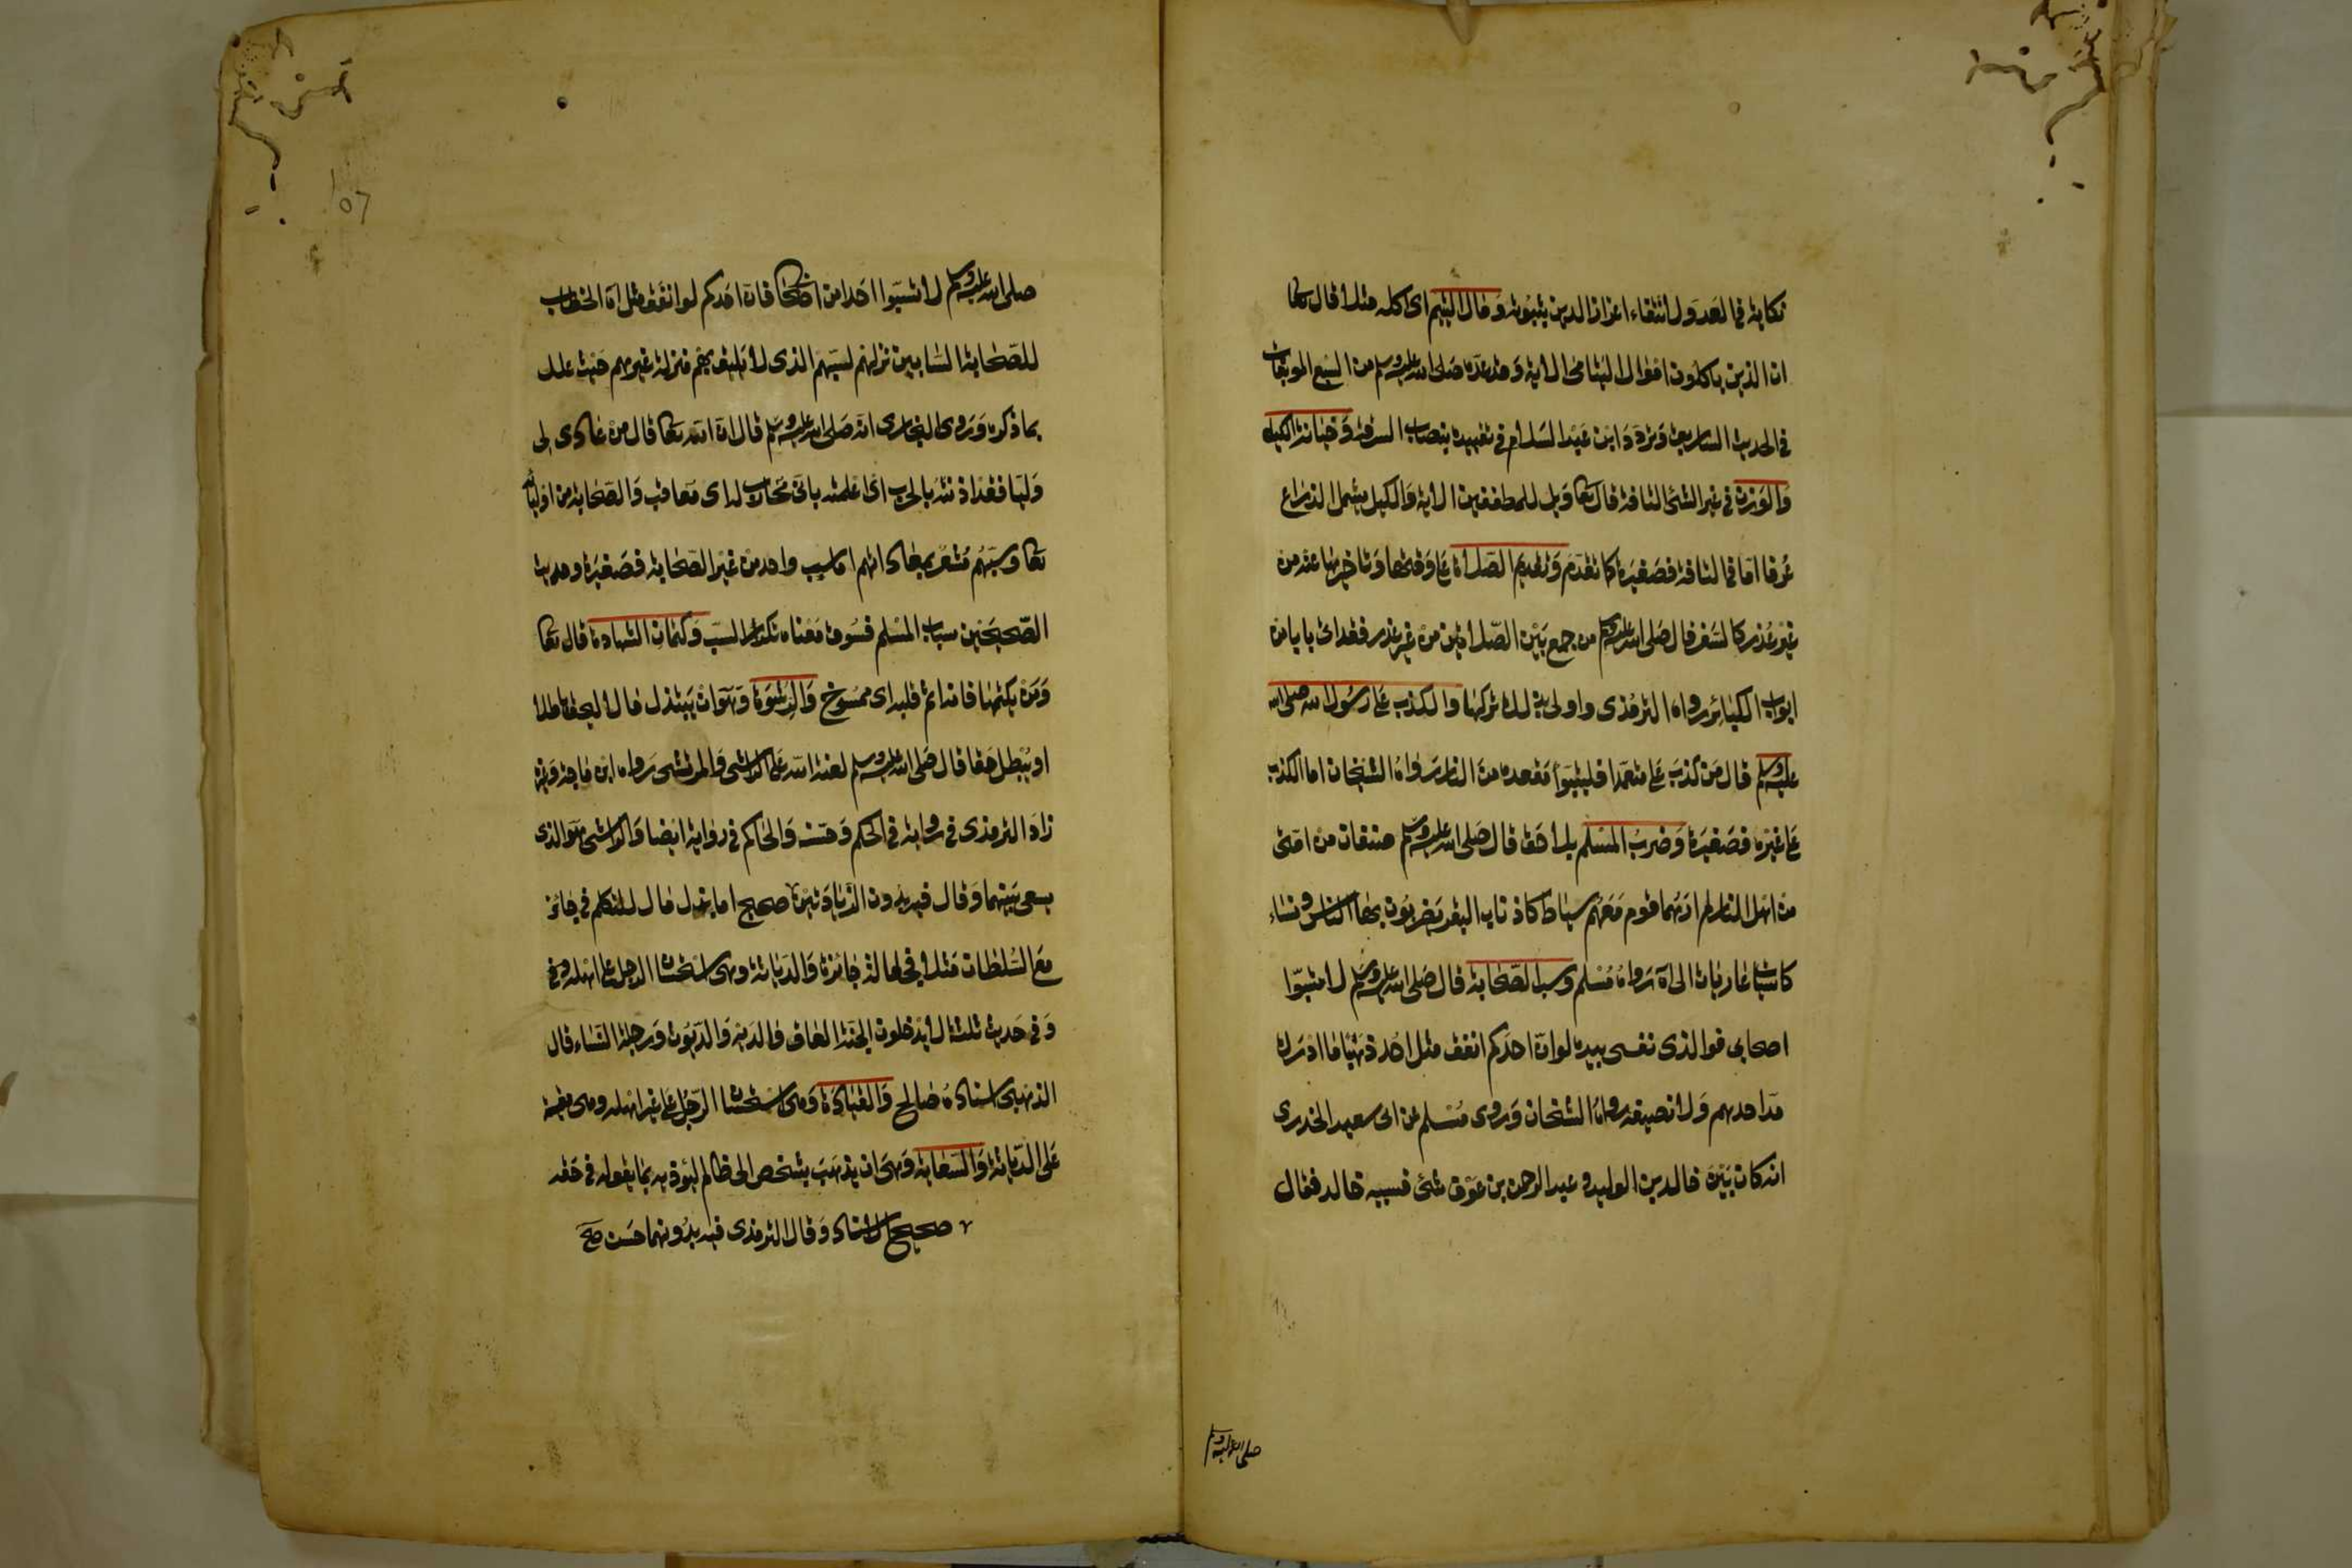 نكاية في العدو لانتفاء اعزاز الدين بثبوته ومال اليتيم اى اكله مثلا قال تعا
ان الذين ياكلون اموال اليتامى الاية وقد عده صلى الله عليه وسلم من السبع الموبقات
في الحديث السابق وتردد ابن عبد السلام في تقييده بنصاب السرقة وخيانة الكيل
والوزن في غير الشئ التافه قال تعا ويل للمطففين الاية والكيل يشمل الذراع
عرفا اما في التافه فصغيرة كما تقدم وتقديم الصلاة على وقتها وتاخيرها عنه من
غير عذر كالسفر قال صلى الله عليه وسلم من جمع بين الصلاتين من غير عذر فقد اتى بابا من
ابواب الكبائر رواه الترمذى واولى بذلك تركها والكذب على رسول الله صلى الله
عليه وسلم قال من كذب على متعمدا فليتبوأ مقعده من النار رواه الشيخان اما الكذب
على غيره فصغيرة وضرب المسلم بلا حق قال صلى الله عليه وسلم صنفان من امتى
من اهل النار لم ارهما قوم معهم سياط كاذناب البقر يضربون بها الناس ونساء
كاسيات عاريات الى اه رواه مسلم وسب الصحابة قال صلى الله عليه وسلم لا تسبوا
اصحابى فوالذى نفسى بيده لو ان احدكم انفق مثل احد ذهبا ما ادرك
مد احدهم ولا نصيفه رواه الشيخان وروى مسلم عن ابى سعيد الخدرى
انه كان بين خالد بن الوليد وعبد الرحمن بن عوف شئ فسبه خالد فقال
صلى الله عليه وسلم
107
صلى الله عليه وسلم لا تسبوا احدا من اصحابى فان احدكم لو انفق مثل اه الخطاب
للصحابة السابين نزلهم لسبهم الذى لا يليق بهم منزلة غيرهم حيث علل
بما ذكره وروى البخارى انه صلى الله عليه وسلم قال ان الله تعا قال من عادى لى
وليا فقد اذنته بالحرب اى اعلمته بانى محارب له اى معاقب والصحابة من اوليائه
تعا وسبهم مشعر بمعاداتهم اما سب واحد من غير الصحابة فصغيرة وحديث
الصحيحين سباب المسلم فسوق معناه تكرار السب وكتمان الشهادة قال تعا
ومن يكتمها فانه اثم قلبه اى ممسوخ والرشوة وهو ان يبذل مالا ليحق باطلا
او يبطل حقا قال صلى الله عليه وسلم لعنة الله على الراشى والمرتشى رواه ابن ماجه وغيره
زاد الترمذى في رواية في الحكم وحسنه والحاكم في رواية ايضا والراشى هو الذى
يسعى بينهما وقال فيه بدون الزيادتين ٢ صحيح اما بذل مال للمتكلم في جائز
مع السلطان مثلا فجعالة جائزة والدياثة وهى استحسان الرجل على اهله وفي
وفي حديث ثلثة لا يدخلون الجنة العاق والديه والديوث ورجلة النساء قال
الذهبى اسناده صالح والقيادة وهى استحسان الرجل على غير اهله وهى مقيسة
على الدياثة والسعاية وهى ان يذهب بشخص الى ظالم ليوذيه بما يقوله في حقه
٢ صحيح الاسناد وقال الترمذى فيه بدونهما حسن صح